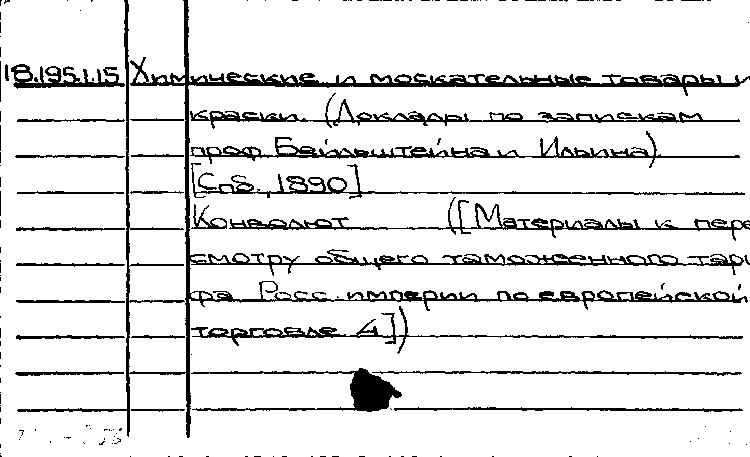 18.195.1.15 Химические и москательные товары и
краски. (Доклады по запискам
проф. Бейльштейна и Ильина)
[Спб., 1890]
Конволют ([Материалы к пере
смотру общего таможенного тари
фа Росс. империи по европейской
торговле 4])